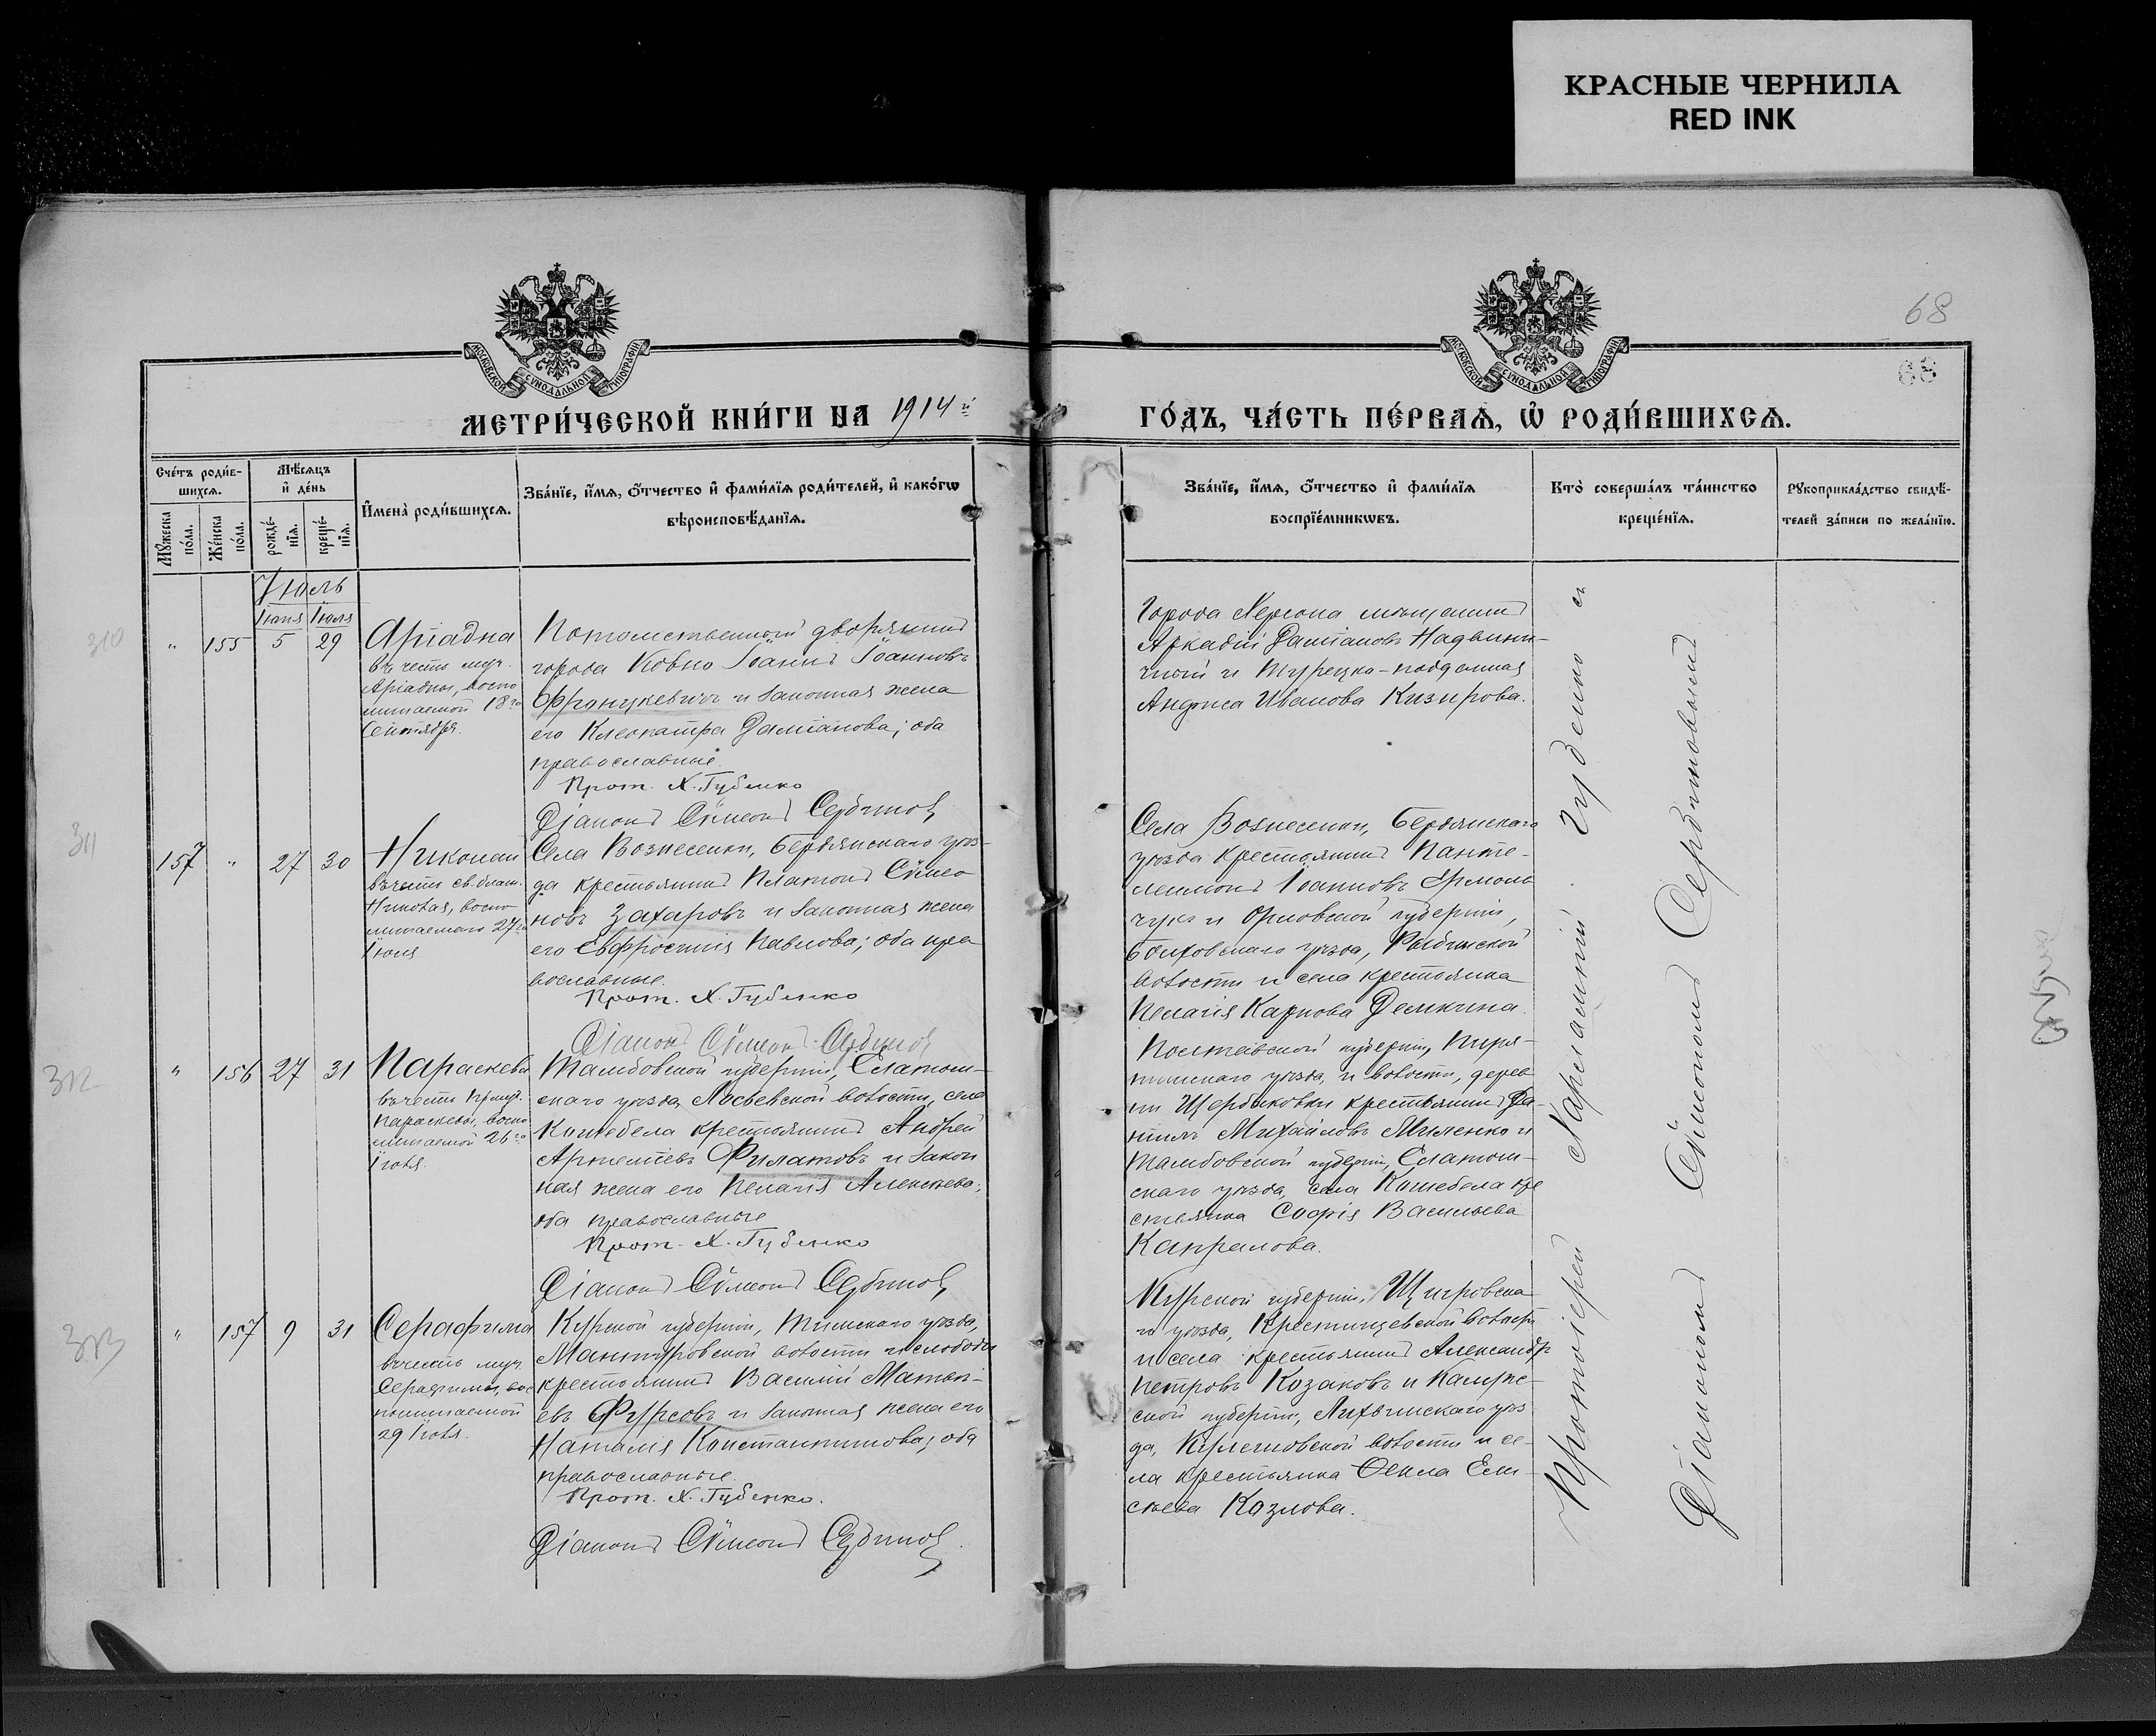 КРАСНЫЕ ЧЕРНИЛА
RED INK
68
68
МОСКОВСКОЙ СѴНОДАЛЬНОЙ ТИПОГРАФІИ
МОСКОВСКОЙ СѴНОДАЛЬНОЙ ТИПОГРАФІИ
МЕТРИ́ЧЕСКОЙ КНИ́ГИ НА 1914 й
ГО́ДЪ, ЧА́СТЬ ПЕ́РВАѦ, Ѡ҆ РОДИ́ВШИХСѦ.
Сче́тъ роди́в-
шихсѧ.
Мꙋ́жеска по́ла.
Же́нска по́ла.
Мѣ́сѧцъ
и҆ де́нь
рожде́-
нїѧ.
креще́-
нїѧ.
И҆мена̀ роди́вшихсѧ.
Зва́нїе, и҆́мѧ, ѻ҆́тчество и҆ фами́лїѧ роди́телей, и҆ како́гѡ
вѣроисповѣ́данїѧ.
Зва́нїе, и҆́мѧ, ѻ҆́тчество и҆ фами́лїѧ
воспрїе́мникѡвъ.
Кто̀ соверша́лъ та́инство
креще́нїѧ.
Рꙋкоприкла́дство свидѣ́-
телей за́писи по жела́нїю.
Іюль
Іюня Іюля
310
" 155 5 29
Аріадна
въ честь муч.
Аріадны, воспо
минаемой 18го
Сентября.
Потомственный дворянинъ
города Ковно Іоаннъ Іоанновъ
Францкевичъ и законная жена
его Клеопатра Даміанова; оба
православные.
Прот. Х. Губенко
Діаконъ Сѵмеонъ
Города Херсона мѣщанинъ
Аркадій Даміановъ
и Турецко-подданная
Иванова Кизирова.
311
157 " 27 30
Николай
въ честь св. блаж.
Николая, воспо
минаемаго 27го
Іюля
Села Вознесенки, Бердянскаго уѣз-
да крестьянинъ Платонъ Сѵмео
новъ Захаровъ и законная жена
его Евфросинія Павлова; оба пра
вославные.
Прот. Х. Губенко
Діаконъ Сѵмеонъ
Села Вознесенки, Бердянскаго
уѣзда крестьянинъ Панте-
леимонъ Іоанновъ Ермоль
чукъ и Орловской губерніи,
уѣзда,
волости и села крестьянка
Пелагія Карпова Демкина.
312
" 156 27 31
Параскева
въ честь
Параскевы, воспо
минаемой 26го
Іюля.
Тамбовской губерніи, Елатом-
скаго уѣзда, волости, села
Кошебела крестьянинъ Андрей
Артемьевъ Филатовъ и закон
ная жена его Пелагія Алексѣева;
оба православные
Прот. Х. Губенко
Діаконъ Сѵмеонъ
Полтавской губерніи, Пиря-
тинскаго уѣзда, и волости, дерев
ни крестьянинъ Да-
ніилъ Михайловъ Миленко и
Тамбовской губерніи, Елатом-
скаго уѣзда, села Кошебела кре
стьянка Софія Васильева
Капралова.
313
" 157 9 31
Серафима
въ честь муч
Серафимы, вос
поминаемой
29 Іюля.
Курской губерніи, Тимскаго уѣзда,
Мантуровской волости и слободы
крестьянинъ Василій Матвѣ-
евъ Фурсовъ и законная жена его
Наталія Константинова; оба
православные.
Прот. Х. Губенко.
Діаконъ Сѵмеонъ
Курской губерніи, Щигровска
го уѣзда, Крестищевской волости
и села крестьянинъ Александръ
Петровъ Козаковъ и Калуж-
ской губерніи, Лихвинскаго уѣз
да, волости и се-
ла крестьянка Ѳекла Ели-
сѣева Козлова.
Протоіерей Харлампій Губенко съ
Діакономъ Сѵмеономъ